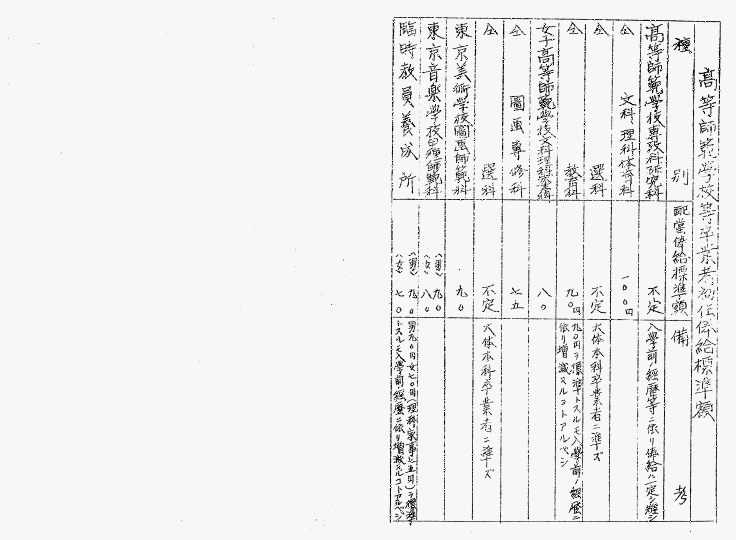 高等師範学校等卒業者初任俸給標準額
種別
配当俸給標準額
備考
高等師範学校専攻科研究科
不定
入学前ノ経歴等ニ依リ俸給ハ一定シ難シ
文科理科体育科
一〇〇円
仝
選科
不定
大体本科卒業者ニ準ズ
仝
教育科
九〇円
九〇円ヲ標準トスルモ入学前ノ経歴ニ
依リ増減スルコトアルベシ
女子高等師範学校文科理科家事科
八〇
仝
図画専修科
七五
仝
選科
不定
大体本科卒業者ニ準ズ
東京美術学校図画師範科
九〇
東京音楽学校甲種師範科
(男) 九〇
(女) 八〇
臨時教員養成所
(男) 九〇
(女) 七〇
男九〇円女七〇円(理科家事七五円)ヲ標準
トスルモ入学前ノ経歴ニ依リ増減スルコトアルベシ